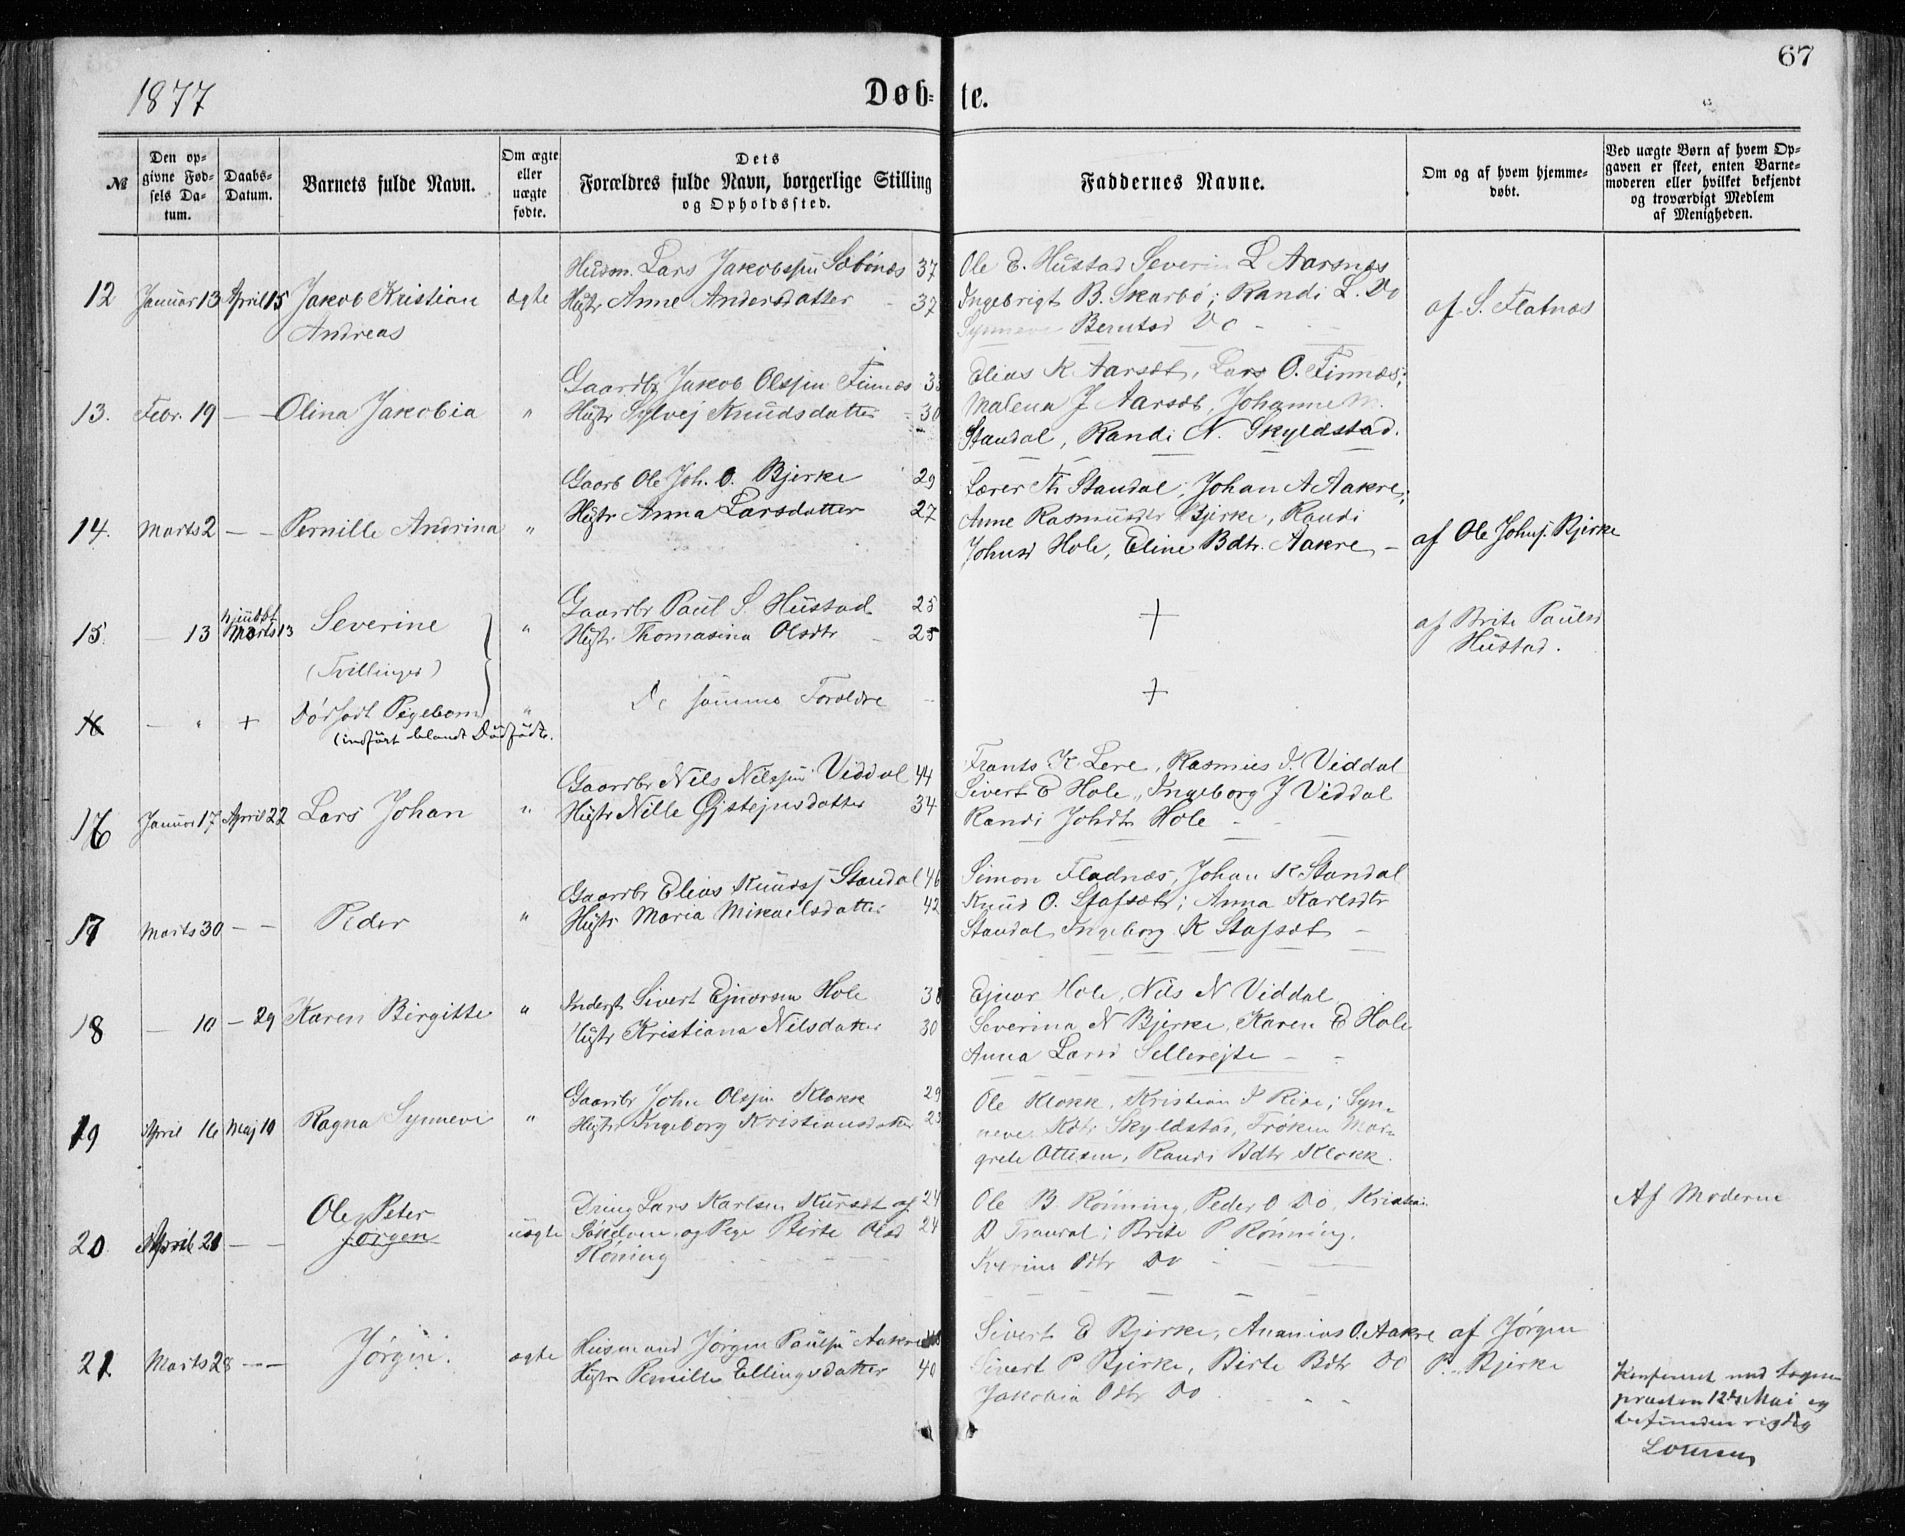 67
1877
Døb-te.
№
Den opgivne Fødsels Datum.
Daabs-Datum.
Barnets fulde Navn.
Om ægte eller uægte fødte.
Dets Forældres fulde Navn, borgerlige Stilling og Opholdssted.
Faddernes Navne.
Om og af hvem hjemmedøbt.
Ved uægte Børn af hvem Opgaven er skeet, enten Barnemoderen eller hvilket bekjendt og troværdigt Medlem af Menigheden.
Husm. Lars Jakobssøn Sæbönæs 37 Ole E. Hustad Severin L Aarsnæs
12 Januar 13 April 15 Jakob Kristian ægte Hustr Anne Andersdatter 37 Ingebrigt B. Skarbö; Randi L. Do af S. Flatnæs
Andreas Synneve Berntsd Do
Gaardbr Jakob Olssøn Finnæs 33 Elias K Aarsæt, Lars O. Finnæs;
13. Febr. 19 — — Olina Jakobia " Hustr Sylvej Knudsdatter 30 Malena J Aarsæt, Johanne M.
Standal, Randi N. Skyldstad.
Gaarb Ole Joh. O. Bjerke 29 Lærer Th Standal; Johan A Aakre;
14. Marts 2 — — Pernille Andrina " Hustr Anna Larsdatter 27 Anne Rasmusdtr Bjerke, Randi
Johnsd Hole, Eline Bdtr. Aakre — af Ole Johns. Bjerke
Gaardbr Paul S. Hustad 25
15. — 13 hjmdbt Marts 13 Severine " Hustr Thomasina Olsdtr 25 + af Brite Paulsd
(Tvillinger) Hustad.
16 — " + Dödfödt Pigebarn " De samme Forældre +
(indfört blandt Dödfödte.
Gaardbr Nils Nilssøn Viddal 44 Frants K. Lere, Rasmus I. Viddal
16 Januar 17 April 22 Lars Johan " Hustr Nille Øjstejnsdatter 34 Sivert E Hole, Ingeborg J Viddal
Randi Johdtr Hole
Gaardbr Elias Knudss Standal 46 Simon Fladnæs, Johan K Standal
17 Marts 30 — — Peder " Hustr Maria Mikaelsdatter 42 Knud O. Stafsæt; Anna Karlsdtr
Standal, Ingeborg K Stafsæt
Inderst Sivert Ejnarsen Hole 38 Ejnar Hole, Nils N Viddal,
18 — 10 — 29 Karen Birgitte " Hustr Kristiana Nilsdatter 30 Severina N Bjerke, Karen E Hole
Anna Larsd Sellerejte
Gaardbr John Olssøn Klokk 29 Ole Klokk, Kristian I Rise; Syn-
19 April 16 Maj 10 Ragna Synnevi " Hustr Ingeborg Kristiansdatter 23 neve Kdtr Skyldstad, Frøken Mar-
grete Ottesen, Randi Bdtr Klokk.
Ole Peter Dreng Lars Karlsen Kursæt af 24 Ole B. Rönning, Peder O Do, Kristian
20. April 21 — — Jørgen uægte og Pige Birte Olsd 24 D Trandal; Brite P Rönning.
Röning Do
Af Moderen
Husmand Jörgen Paulsøn Aakre Sivert E Bjerke, Ananias O. Aakre af Jörgen
21. Marts 28 — — Jörgin. ægte Hustr Pernille Ellingsdatter 40 Sivert P Bjerke, Birte Bdtr Do P. Bjerke
Jakobia Odtr Do
Konfereret med Sogne-
præsten 12te Mai og
befunden rigtig